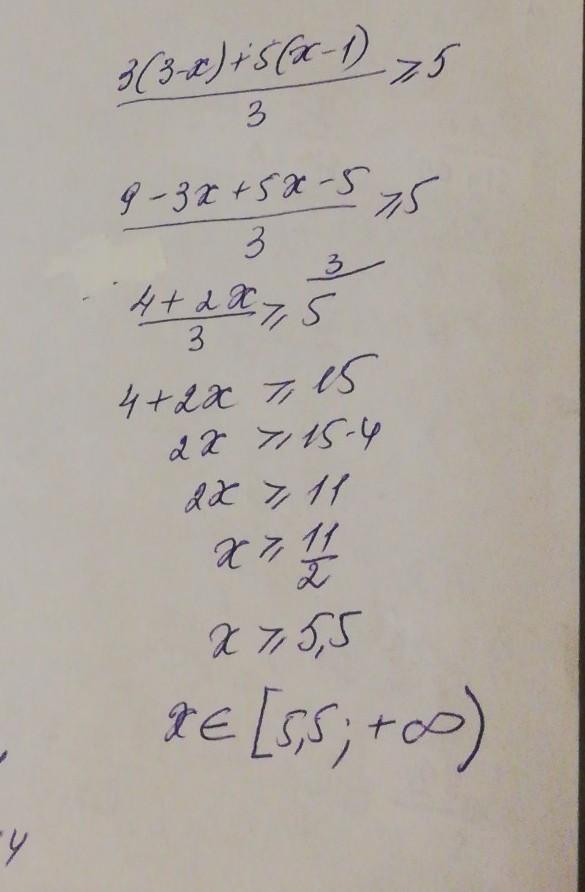 3(3-x)+5(x-1)/3 ⩾5
9-3x+5x-5/3 ⩾5
3
4+2x/3 ⩾ 5
4+2x ⩾ 15
2x ⩾ 15-4
2x ⩾ 11
x ⩾ 11/2
x ⩾ 5,5
x∈[5,5; +∞)